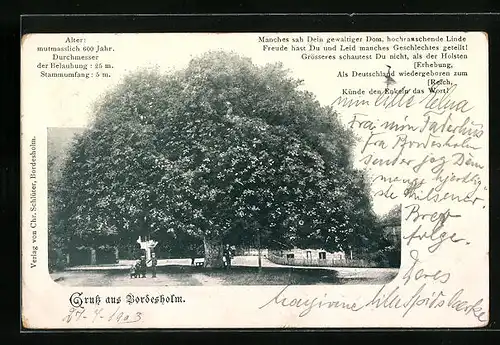 Alter:
mutmasslich 600 Jahr.
Durchmesser
der Belaubung : 25 m.
Stammumfang : 5 m.
Manches sah Dein gewaltiger Dom, hochrauschende Linde
Freude hast Du und Leid manches Geschlechtes geteilt!
Grösseres schautest Du nicht, als der Holsten
[Erhebung,
Als Deutschland wiedergeboren zum
[Reich,
Künde den Enkeln das Wort!
Verlag von Chr. Schlüter, Bordesholm.
Min lille
Fra min
fra Bordesholm
sender jeg Dem
mange
Hilsener.
Brev
følge.
Deres
Gruß aus Bordesholm.
27-7-1903